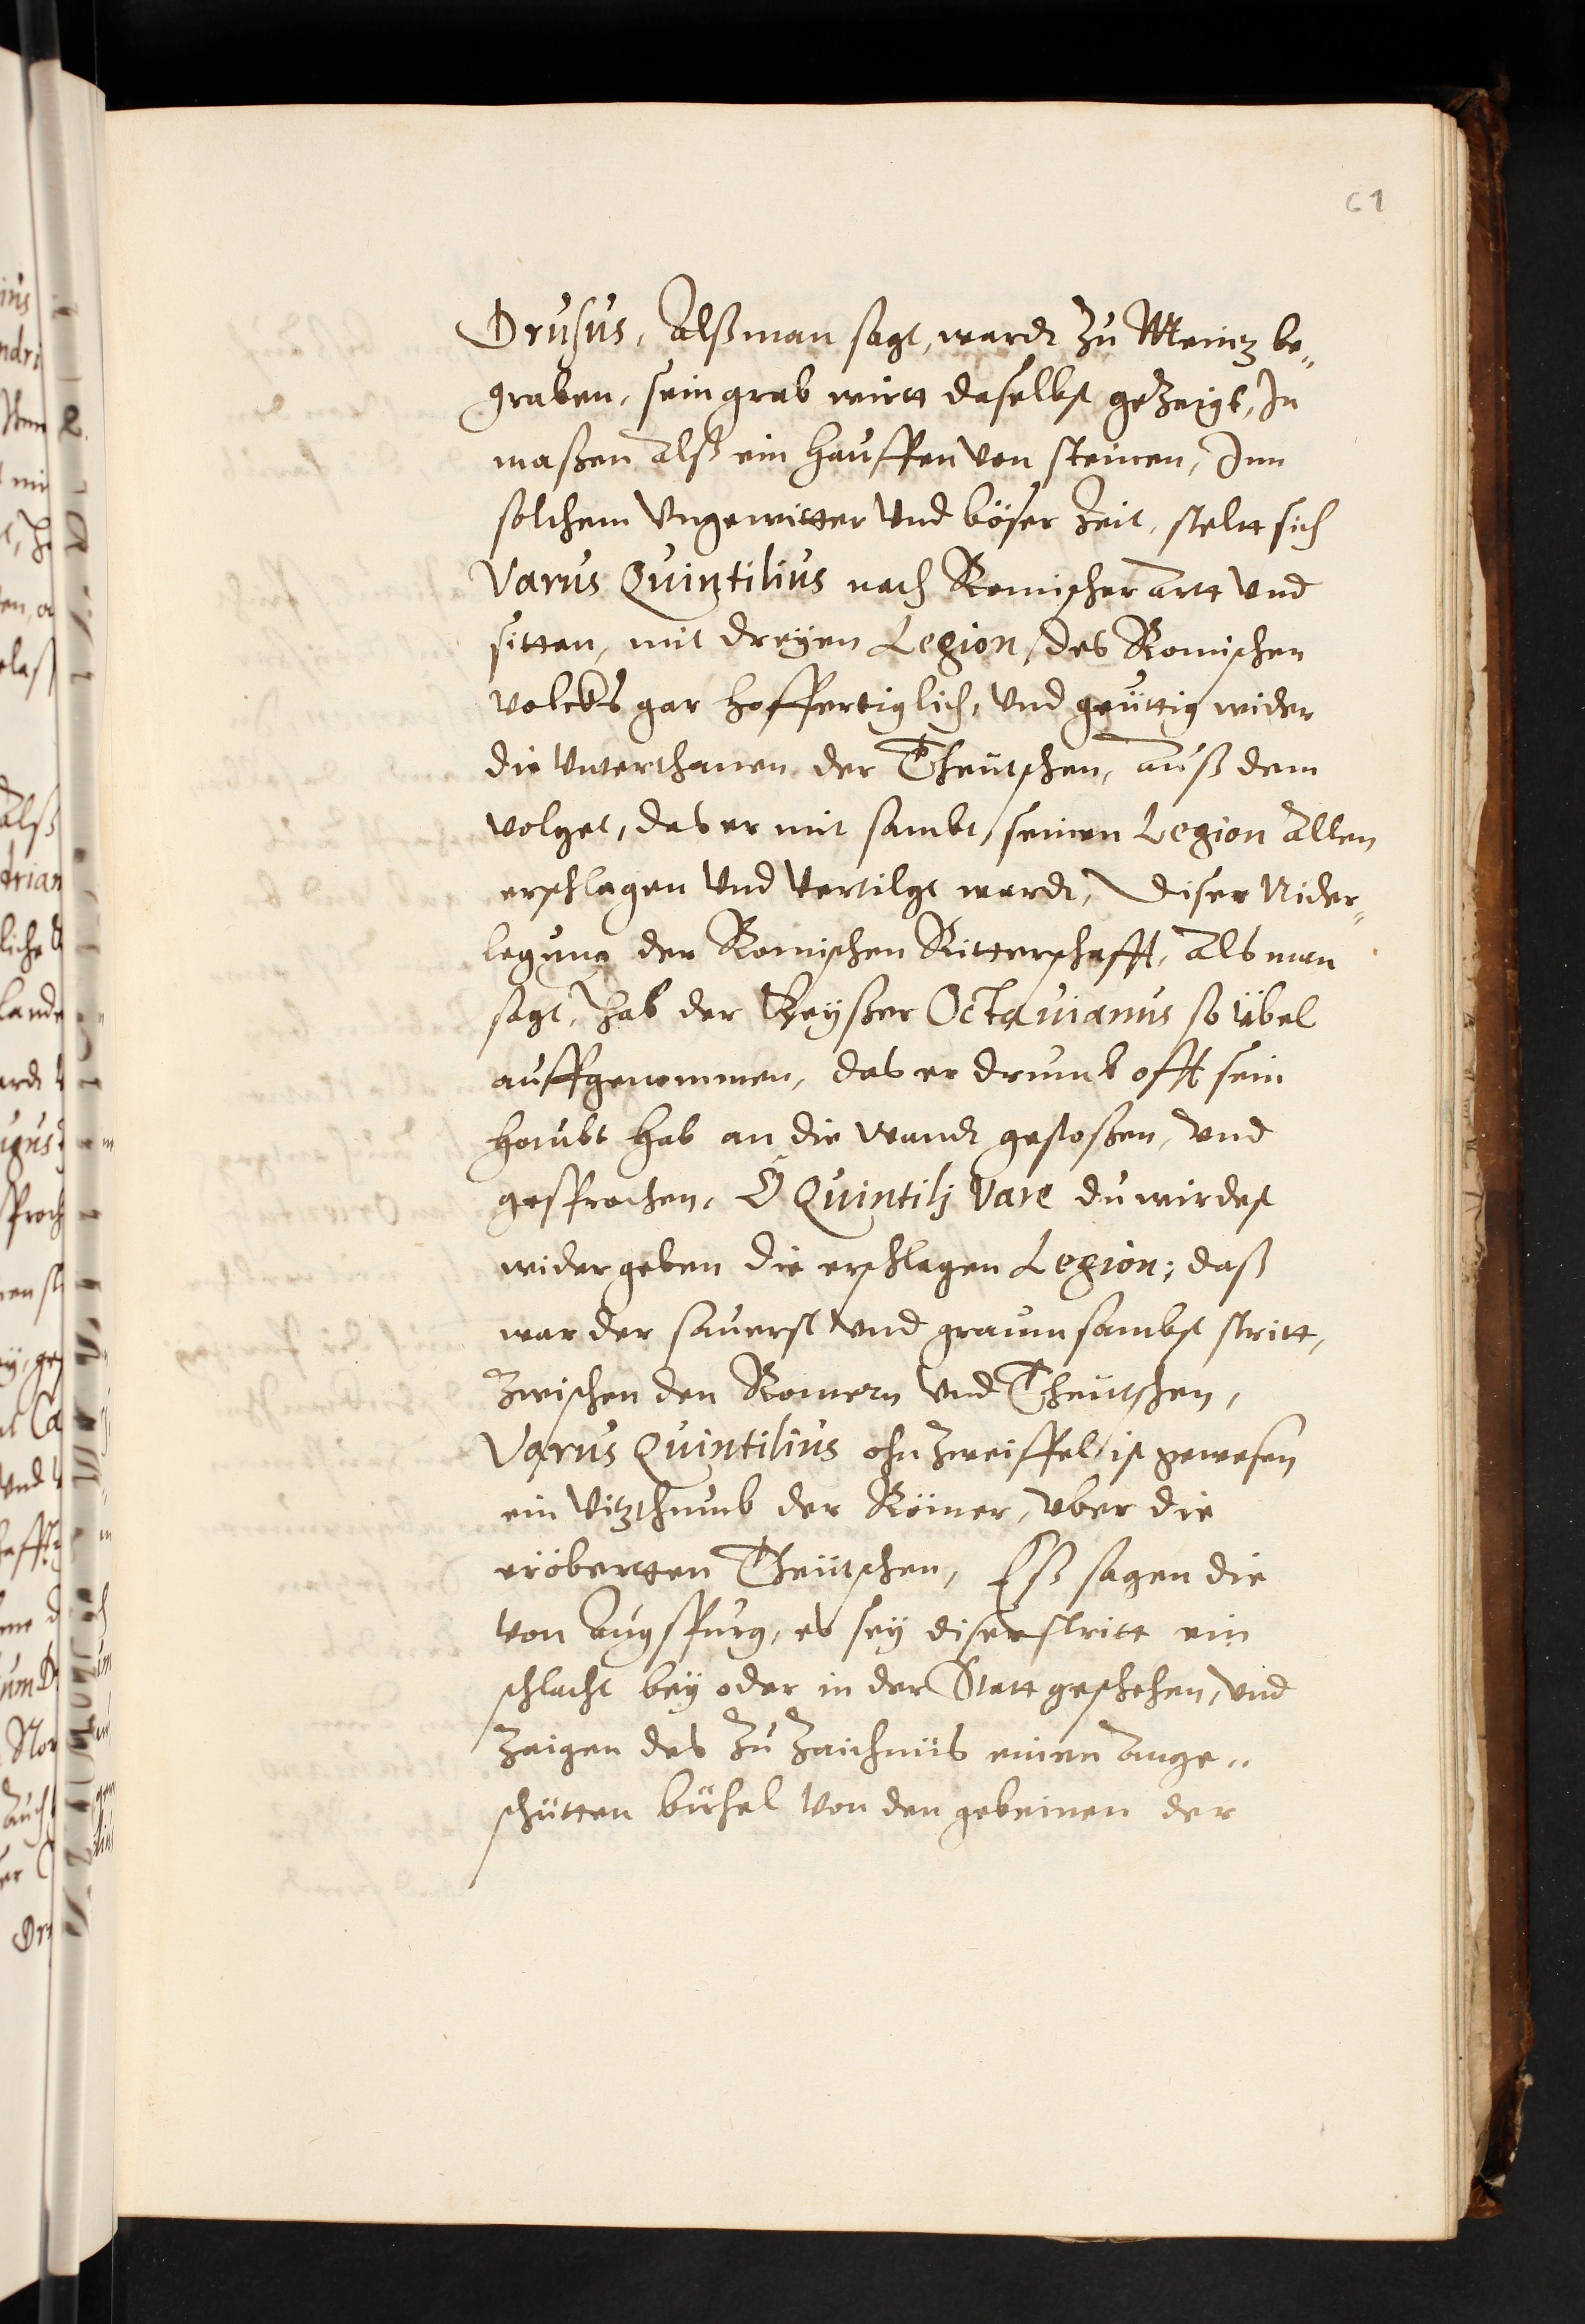 61
Drusus, Alß man sagt, wardt zu Meinz be„
graben, sein grab wirtt daselbst gezeigt, In
maßen Alß ein hauffen von steinen, Inn
solchem Vngewitter Vnd böser Zeit, steltt sich
Varus Quintilius nach Romischer artt Vnd
sitten, mit dreÿen Legion, des Romischen
Volcks gar hoffertiglich, Vnd geüttig wider
die Vnterthanen der Theütschen, auß dem
Volget, das er mit sambt, seinen Legion Allen
erschlagen Vnd Vertilgt wardt, Diser Nider„
legung der Romischen Ritterschafft, Als man
sagt, hab der Keÿßer Octauianus so übel
auffgenommen, das er drumb offt sein
haubt hab an die wandt gestoßen, Vnd
gesprochen, O Quintilj Vare du wirdest
wider geben die erschlagen Legion; daß
war der saurest Vnd graumsambst stritt,
Zwischen den Romern Vnd Theütschen,
Varus Quintilius ohn Zweiffel ist gewesen
ein Vitzthumb der Römer, Vber die
eröbertten Theütschen, Eß sagen die
Von Augspurg, es seÿ diser stritt ein
schlacht beÿ oder in der Statt geschehen, Vnd
Zeigen des Zu Zaichnüs einen Ange„
schütten bühel Von den gebeinen der